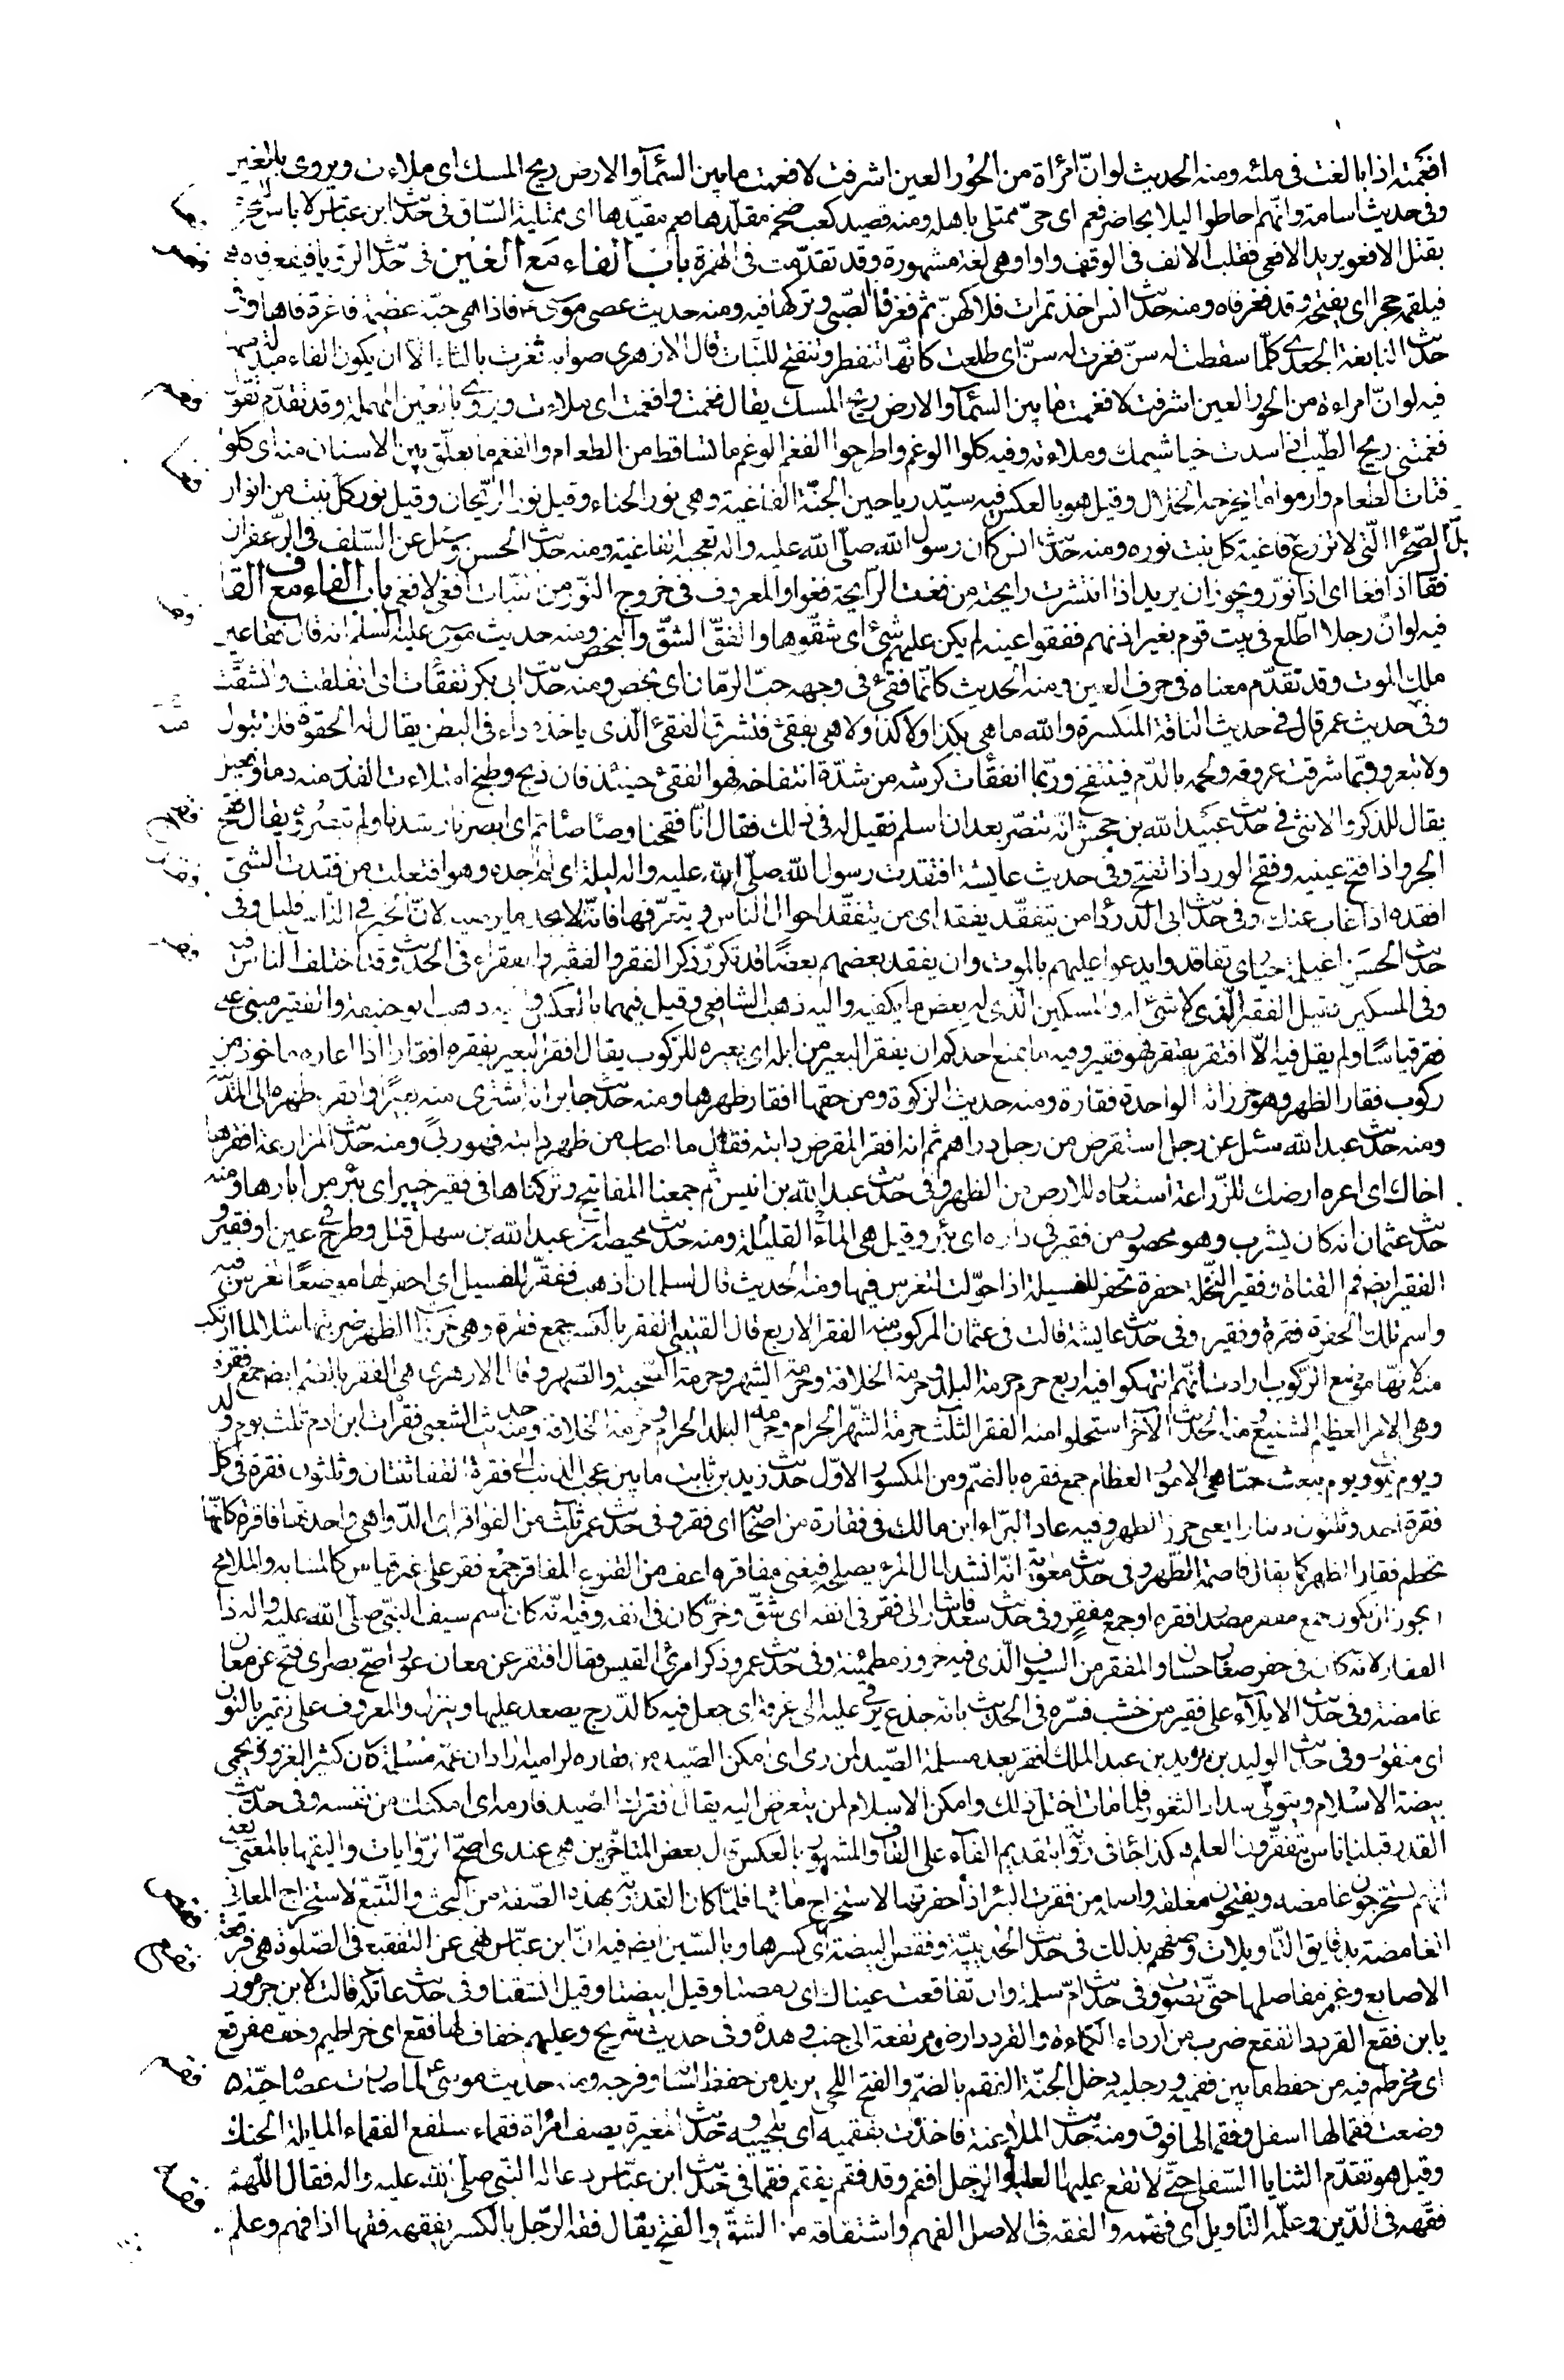 افعمته اذا بالغت فى ملئه ومنه الحديث لو انّ امرأة من الحور العين اشرفت لافعمت ما بين السمآء والارض ريح المسك اى ملاءت ويروى بالغين
وفى حديث اسامة وانّهم احاطوا ليلا بحاضر فعم اى حىّ ممتلى باهله ومنه قصيد كعب ضخم مقلّدها فعم مقيّدها اى ممتلية السّاق فى حديث ابن عبّاس لا باس للمحرم
بقتل الافعو يريد الافعى فقلب الالف فى الوقف واوا وهى لغة مشهورة وقد تقدّمت فى الهمزة باب الفاء مع الغين فى حديث الرؤيا فيفغر فاه
فيلقمه حجرا اى يفتحه وقد فغر فاه ومنه حديث انس اخذ تمرات فلاكهنّ ثم فغر فا الصّبى وتركها فيه ومنه حديث عصى موسى فاذا هى حيّة عظيمة فاغرة فاها وفى
حديث النابغة الجعدى كلّما سقطت له سنّ فغرت له سنّ اى طلعت كانّها تنفطر وتنفتح للنّبات قال الازهرى صوابه ثغرت بالثاء الّا ان يكون الفاء مبدلة
فيه لو انّ امراءة من الحور العين اشرفت لافغمت ما بين السمآء والارض ريح المسك يقال فغمت وافغمت اى ملاءت ويروى بالعين المهملة وقد تقدّم تقول
فغمتنى ريح الطّيب اذا سدت خياشيمك وملاءته وفيه كلوا الوغم واطرحوا الفغم الوغم ما تساقط من الطعام والفغم ما يعلق بين الاسنان منه اى كلوا
فتات الطعام وارموا ما يخرجه الخلال وقيل هو بالعكس فيه سيّد رياحين الجنّة الفاغية وهى نور الحناء وقيل نور الرّيحان وقيل نور كل نبت من انوار
الصّحرا الّتى لا تزرع فاغية كل نبت نوره ومنه حديث انس كان رسول الله صلّى الله عليه واله تعجبه الفاغية ومنه حديث الحسن وسئل عن السّلف فى الزّعفران
فقا اذا فغا اى اذا نوّر ويجوز ان يريد اذا انتشرت رايحته من فغت الرّايحة فغوا والمعروف فى خروج النّور من النّبات افغى لا فغى باب الفاء مع القاف
فيه لو انّ رجلا اطّلع فى بيت قوم بغير اذنهم ففقوا عينه لم يكن عليهم شئ اى شقّوها والفقّ الشّقّ والبخص ومنه حديث موسى عليه السلم انه فقأ عين
ملك الموت وقد تقدّم معناه فى حرف العين ومنه الحديث كانّما فقئ فى وجهه حبّ الرّمان اى بخص ومنه حديث ابى بكر تفقّات اى انفلقت وانشقّت
وفى حديث عمر قال فى حديث الناقة المنكسرة والله ما هى بكذا ولا كذا ولا هى بفقئ فتشرق الفقئ الّذى ياخذه داء فى البطن يقال له الحقوة فلا تبول
ولا تبعر وربّما شرقت عروقه ولحمه بالدّم فينتفخ وربّما انفقّات كرشه من شدّة انتفاخه فهو الفقئ حينئذ فان ذبح وطبخ امتلاءت القدر منه دما وفعيل
يقال للذكر والانثى فى حديث عبيد الله بن جحش انّه تنصّر بعد ان اسلم فقيل له فى ذلك فقال انّا فقحنا وصأصأتم اى ابصرنا رشدنا ولم تبصروه يقال فقح
الجرو اذا فتح عينيه وفقح الورد اذا تفتح وفى حديث عايشة افتقدت رسول الله صلّى الله عليه واله ليلة اى لم اجده وهو افتعلت من فقدت الشئ
افقده اذا غاب عنك وفى حديث ابى الدرداء من يتفقّد يفقد اى من يتفقّد احوال الناس ويتعرّفها فانّه لا يجد ما يرضيه لانّ الخير فى الناس قليل وفى
حديث الحسن اغيلمة حيارى تفاقدوا يدعوا عليهم بالموت وان يفقد بعضهم بعضًا قد تكرّر ذكر الفقر والفقير والفقراء فى الحديث وقد اختلف الناس فيه
وفى المسكين فقيل الفقير الّذى لا شئ له والمسكين الّذى له بعض ما يكفيه واليه ذهب الشافعى وقيل فيهما بالعكس واليه ذهب ابو حنيفة والفقير مبنى على
فقر قياسًا ولم يقل فيه الّا افتقر يفتقر فهو فقير وفيه ما يمنع احدكم ان يفقر البعير من ابله اى يعيره للرّكوب يقال افقر البعير يفقره افقارا اذا اعاره ماخوذ من
ركوب فقار الظهر وهو خرزاته الواحدة فقارة ومنه حديث الزكوة ومن حقّها افقار ظهرها ومنه حديث جابر انه اشترى منه بعيرًا وافقره ظهره الى المدينة
ومنه حديث عبد الله سئل عن رجل استقرض من رجل دراهم ثم انه افقر المقرض دابته فقال ما اصاب من ظهر دابته فهو ربىً ومنه حديث المزارعة افقرها
اخاك اى اعره ارضك للزّراعة استعاره للارض من الظهر وفى حديث عبد الله بن انيس ثم جمعنا المفاتيح وتركناها فى فقير خيبر اى بئر من ابارها ومنه
حديث عثمان انه كان يشرب وهو محصور من فقير فى داره اى بئر وقيل هى الماء القليلة ومنه حديث محيصة انّ عبد الله بن سهل قتل وطرح فى عين او فقير و
الفقير ايضا فم القناة وفقير النّخلة حفرة تحفر للفسيلة اذا حوّلت لتغرس فيها ومنه الحديث قال لسلمان اذهب ففقّر للفسيل اى احفر لها موضعًا تغرس فيه
واسم تلك الحفرة فقرة وفقير وفى حديث عايشة قالت فى عثمان المركوب منه الفقر الاربع قال القتيبى الفقر بالكسر جمع فقرة وهى خرزات الظهر ضربتها مثلا لما ارتكب
منه لانّها موضع الرّكوب ارادت انّهم انتهكوا فيه اربع حرم حرمة البلد وحرمة الخلافة وحرمة الشهر وحرمة الصّحبة والصّهر وقال الازهرى هى الفقر بالضم ايضا جمع فقرة
وهى الامر العظيم الشنيع ومنه الحديث الآخر استحلوا منه الفقر الثلث حرمة الشهر الحرام وحرمة البلد الحرام وحرمة الخلافة ومنه حديث الشعبى فقرات ابن ادم ثلث يوم ولد
ويوم يموت ويوم يبعث حيّا هى الامور العظام جمع فقره بالضمّ ومن المكسور الاوّل حديث زيد بن ثابت ما بين عجب الذنب الى فقرة القفا ثنتان وثلثون فقرة فى كل
فقرة احد وثلثون دينارا يعنى خرز الظهر وفيه عاد البرّاء ابن مالك فى فقارة من اصحابه اى فقر وفى حديث عمر ثلث من الفواقر اى الدّواهى واحدتها فاقرة كانّها
تحطم فقار الظهر كما يقال قاصمة الظّهر وفى حديث معوية انّه انشد لمال المرء يصلحه فيغنى مفاقره اعف من القنوع المفاقر جمع فقر على غير قياس كالمشابه والملامح
ويجوز ان يكون جمع مفقر مصدر افقره او جمع مفقرٍ وفى حديث سعد فاشار الى فقر فى انفه اى شقّ وحزّ كان فى انفه وفيه انّه كان اسم سيف النبىّ صلّى الله عليه واله ذا
الفقار لانّه كان فى حفر صغار حسان والمفقر من السيوف الّذى فيه حزوز مطمئنة وفى حديث عمر وذكر امرئ القيس فقال افتقر عن معان عور اصحّ بصر اى فتح عن معان
غامضة وفى حديث الايلآء على فقير من خشب فسّره فى الحديث بانه جذع يرقى عليه الى غرفة اى جعل فيه كالدّرج يصعد عليها وينزل والمعروف على نقير بالنون
اى منقور وفى حديث الوليد بن يزيد بن عبد الملك افقر بعد مسلمة الصّيد لمن رمى اى امكن الصّيد من فقاره لراميه اراد ان عمّه مسلمة كان كثير الغزو يحمى
بيضة الاسلام ويتولّى سداد الثغور فلما مات اختل ذلك وامكن الاسلام لمن يتعرض اليه يقال فقرك الصّيد فارمه اى امكنك من نفسه وفى حديث
القدر قبلنا ناس يتفقّرون العلم هكذا جاء فى رواية بتقديم الفآء على القاف والمشهور بالعكس قال بعض المتاخّرين هى عندى اصحّ الرّوايات واليقها بالمعنى يعنى
انّهم يستخرجون غامضه ويفتحون مغلقه واصله من فقرت البئر اذا حفرتها لاستخراج مائها فلمّا كان القدريّة بهذه الصّفة من البحث والتّتبع لاستخراج المعانى
الغامضة بدقايق التّاويلات وصفهم بذلك فى حديث الحديبيّة وفقص البيضة اى كسرها وبالسّين ايضا فيه انّ ابن عبّاس نهى عن التفقيع فى الصّلوة هى فرقعة
الاصابع وغمز مفاصلها حتّى تصوّت وفى حديث امّ سلمة وان تفاقعت عيناك اى رمصتا وقيل ابيضتا وقيل انشقتا وفى حديث عاتكة قالت لابن جرموز
يا بن فقع القردد الفقع ضرب من ارداء الكماءة والقردد ارض مرتفعة الى جنب وهدة وفى حديث شريح وعليهم خفاف لها فقع اى خراطيم وخف مفرقع
اى مخرطم فيه من حفظ ما بين فقميه ورجليه دخل الجنّة الفقم بالضمّ والفتح اللحى يريد من حفظ لسانه وفرجه ومنه حديث موسى ع لما صارت عصاه حيّة
وضعت فقما لها اسفل وفقما لها فوق ومنه حديث الملاعنة فاخذت بفقميه اى بلحييه وحديث المغيرة يصف امرأة فقماء سلفع الفقماء المايلة الحنك
وقيل هو تقدّم الثنايا السّفلى حتّى لا تقع عليها العليا والرّجل افقم وقد فقم يفقم فقما فى حديث ابن عبّاس دعا له النبى صلّى الله عليه واله فقال اللّهمّ
فقّهه فى الدّين وعلّمه التّاويل اى فهّمه والفقه فى الاصل الفهم واشتقاقه من الشقّ والفتح يقال فقه الرّجل بالكسر يفقه فقها اذا فهم وعلم